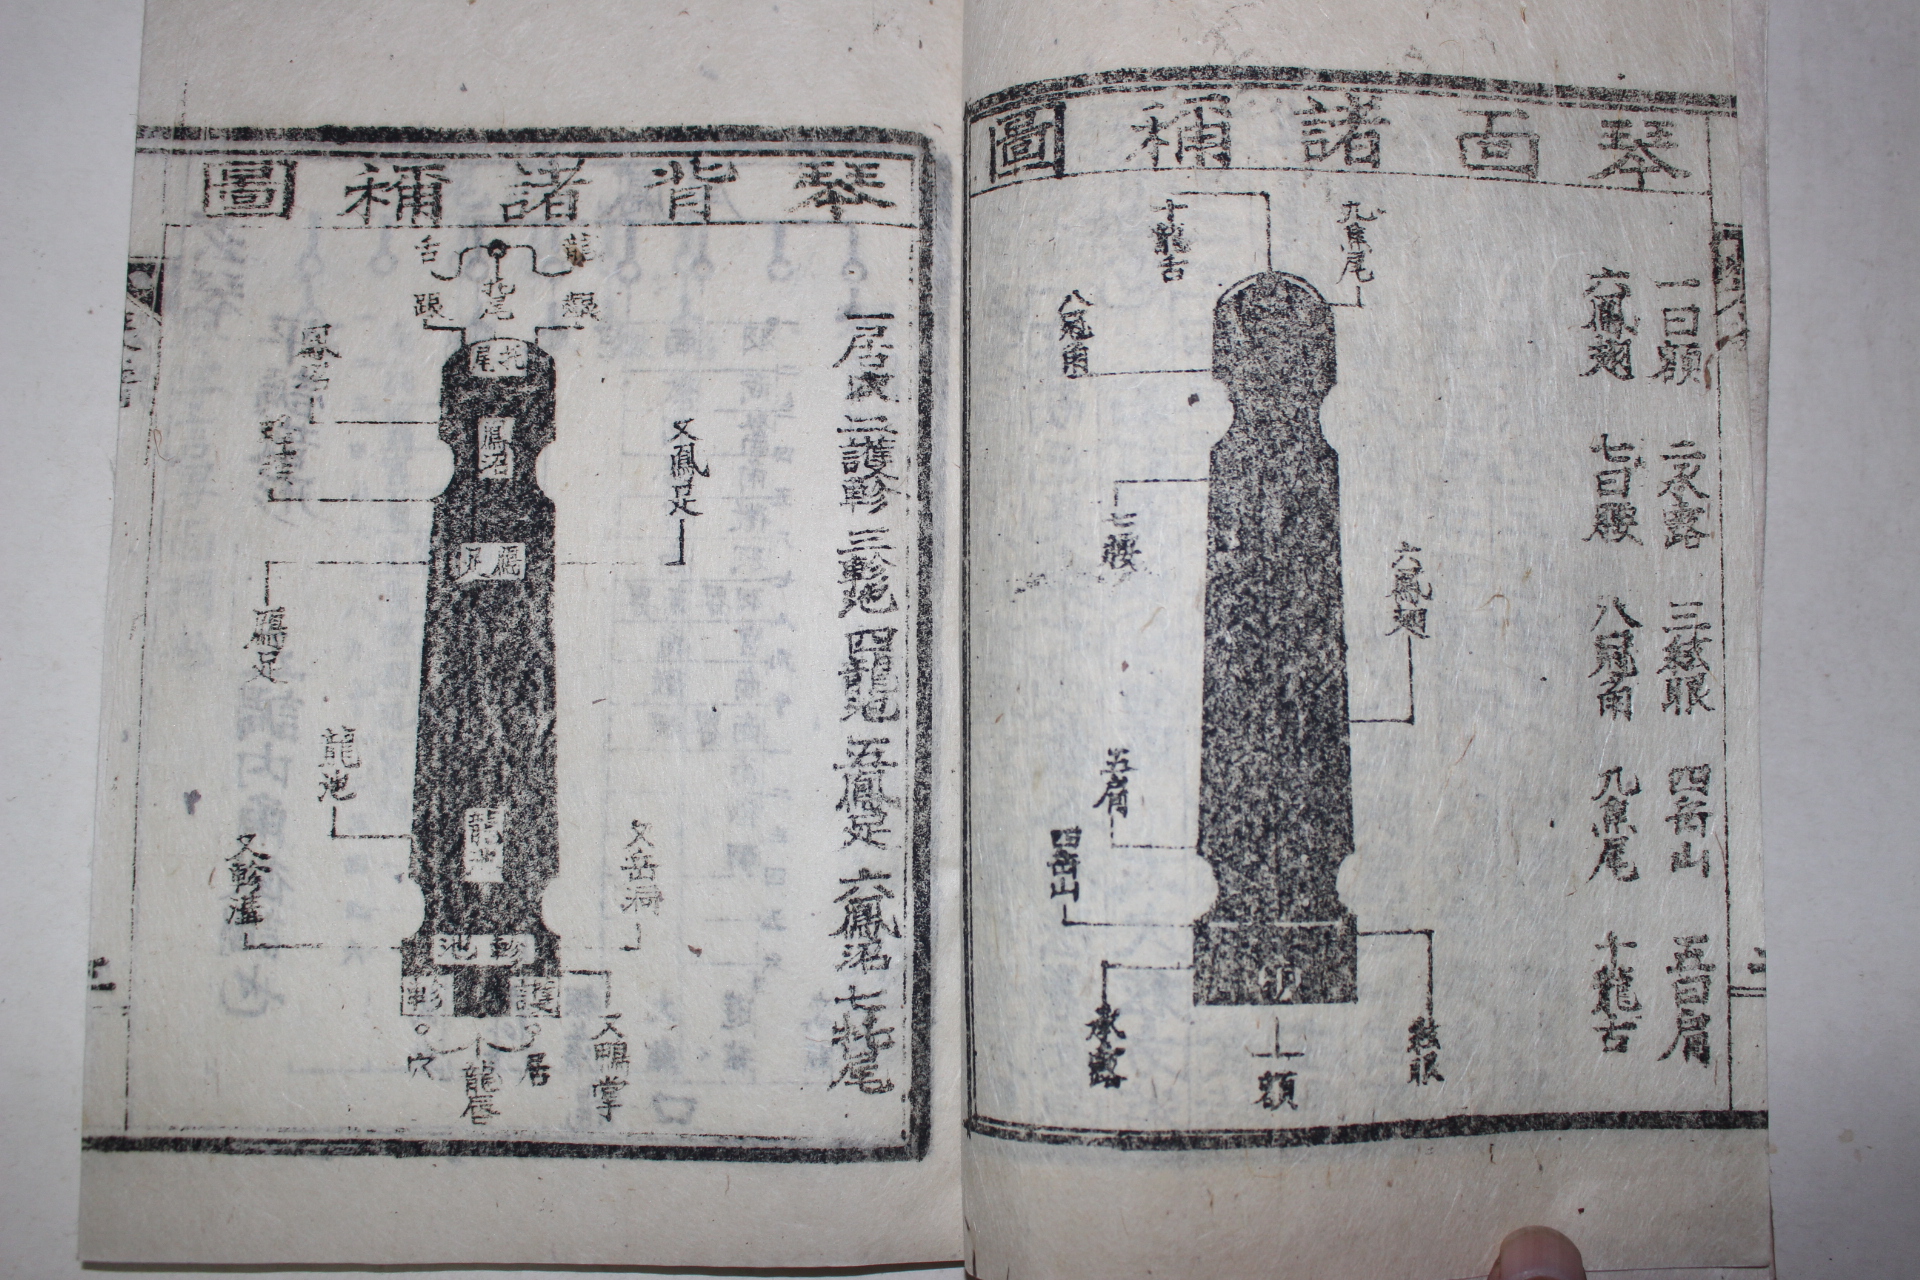 琴面諸稱圖
一曰額 二承露 三絃眼 四岳山 五曰肩
六鳳翅 七曰腰 八冠角 九焦尾 十龍舌
九焦尾
十龍舌
八冠角
七腰
六鳳翅
五肩
四岳山
絃眼
承露
一額
琴背諸稱圖
一居穴 二護軫 三軫池 四龍池 五鳳足 六鳳沼 七托尾
龍
舌
齦
托尾
托尾
鳳沼
鳳沼
又鳳足
雁足
雁足
龍池
龍池
又軫溝
又岳洞
軫池
護
軫
又鴨掌
居
穴
龍唇